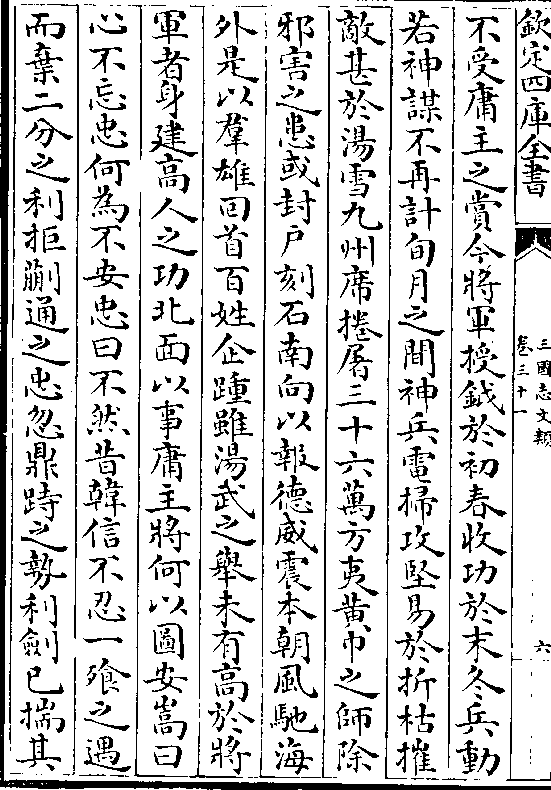 欽定四庫全書
三國志文類
卷三十一
六
不受庸主之賞今將軍授鉞於初春收功於末冬兵動
若神謀不再計旬月之間神兵電掃攻堅易於折枯摧
敵甚於湯雪九州席捲屠三十六萬方夷黃巾之師除
邪害之患或封戶刻石南向以報德威震本朝風馳海
外是以羣雄回首百姓企踵雖湯武之舉未有高於將
軍者身建高人之功北面以事庸主將何以圖安嵩曰
心不忘忠何為不安忠曰不然昔韓信不忍一飱之遇
而棄二分之利拒蒯通之忠忽鼎跱之勢利劒已揣其